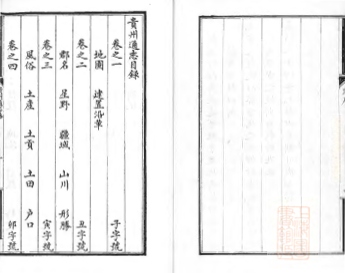 貴州通志目錄
卷之一 子字號
地圖 建置沿革
卷之二 丑字號
郡名 星野 疆域 山川 形勝
卷之三 寅字號
風俗 土產 土貢 土田 戶口
卷之四 卯字號